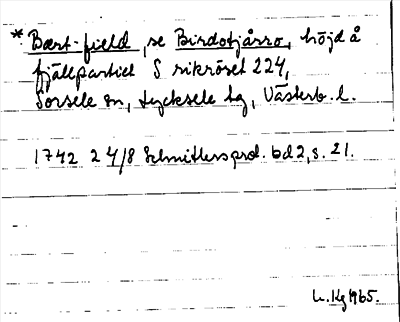 * Bært-field, se Birdotjårro, höjd å
fjällpartiet S rikröset 224,
Sorsele sn, Lycksele lg, Västerb. l.
1742 24/8 Schnitlers prot. bd 2, s. 21.
L. Kg 1965.